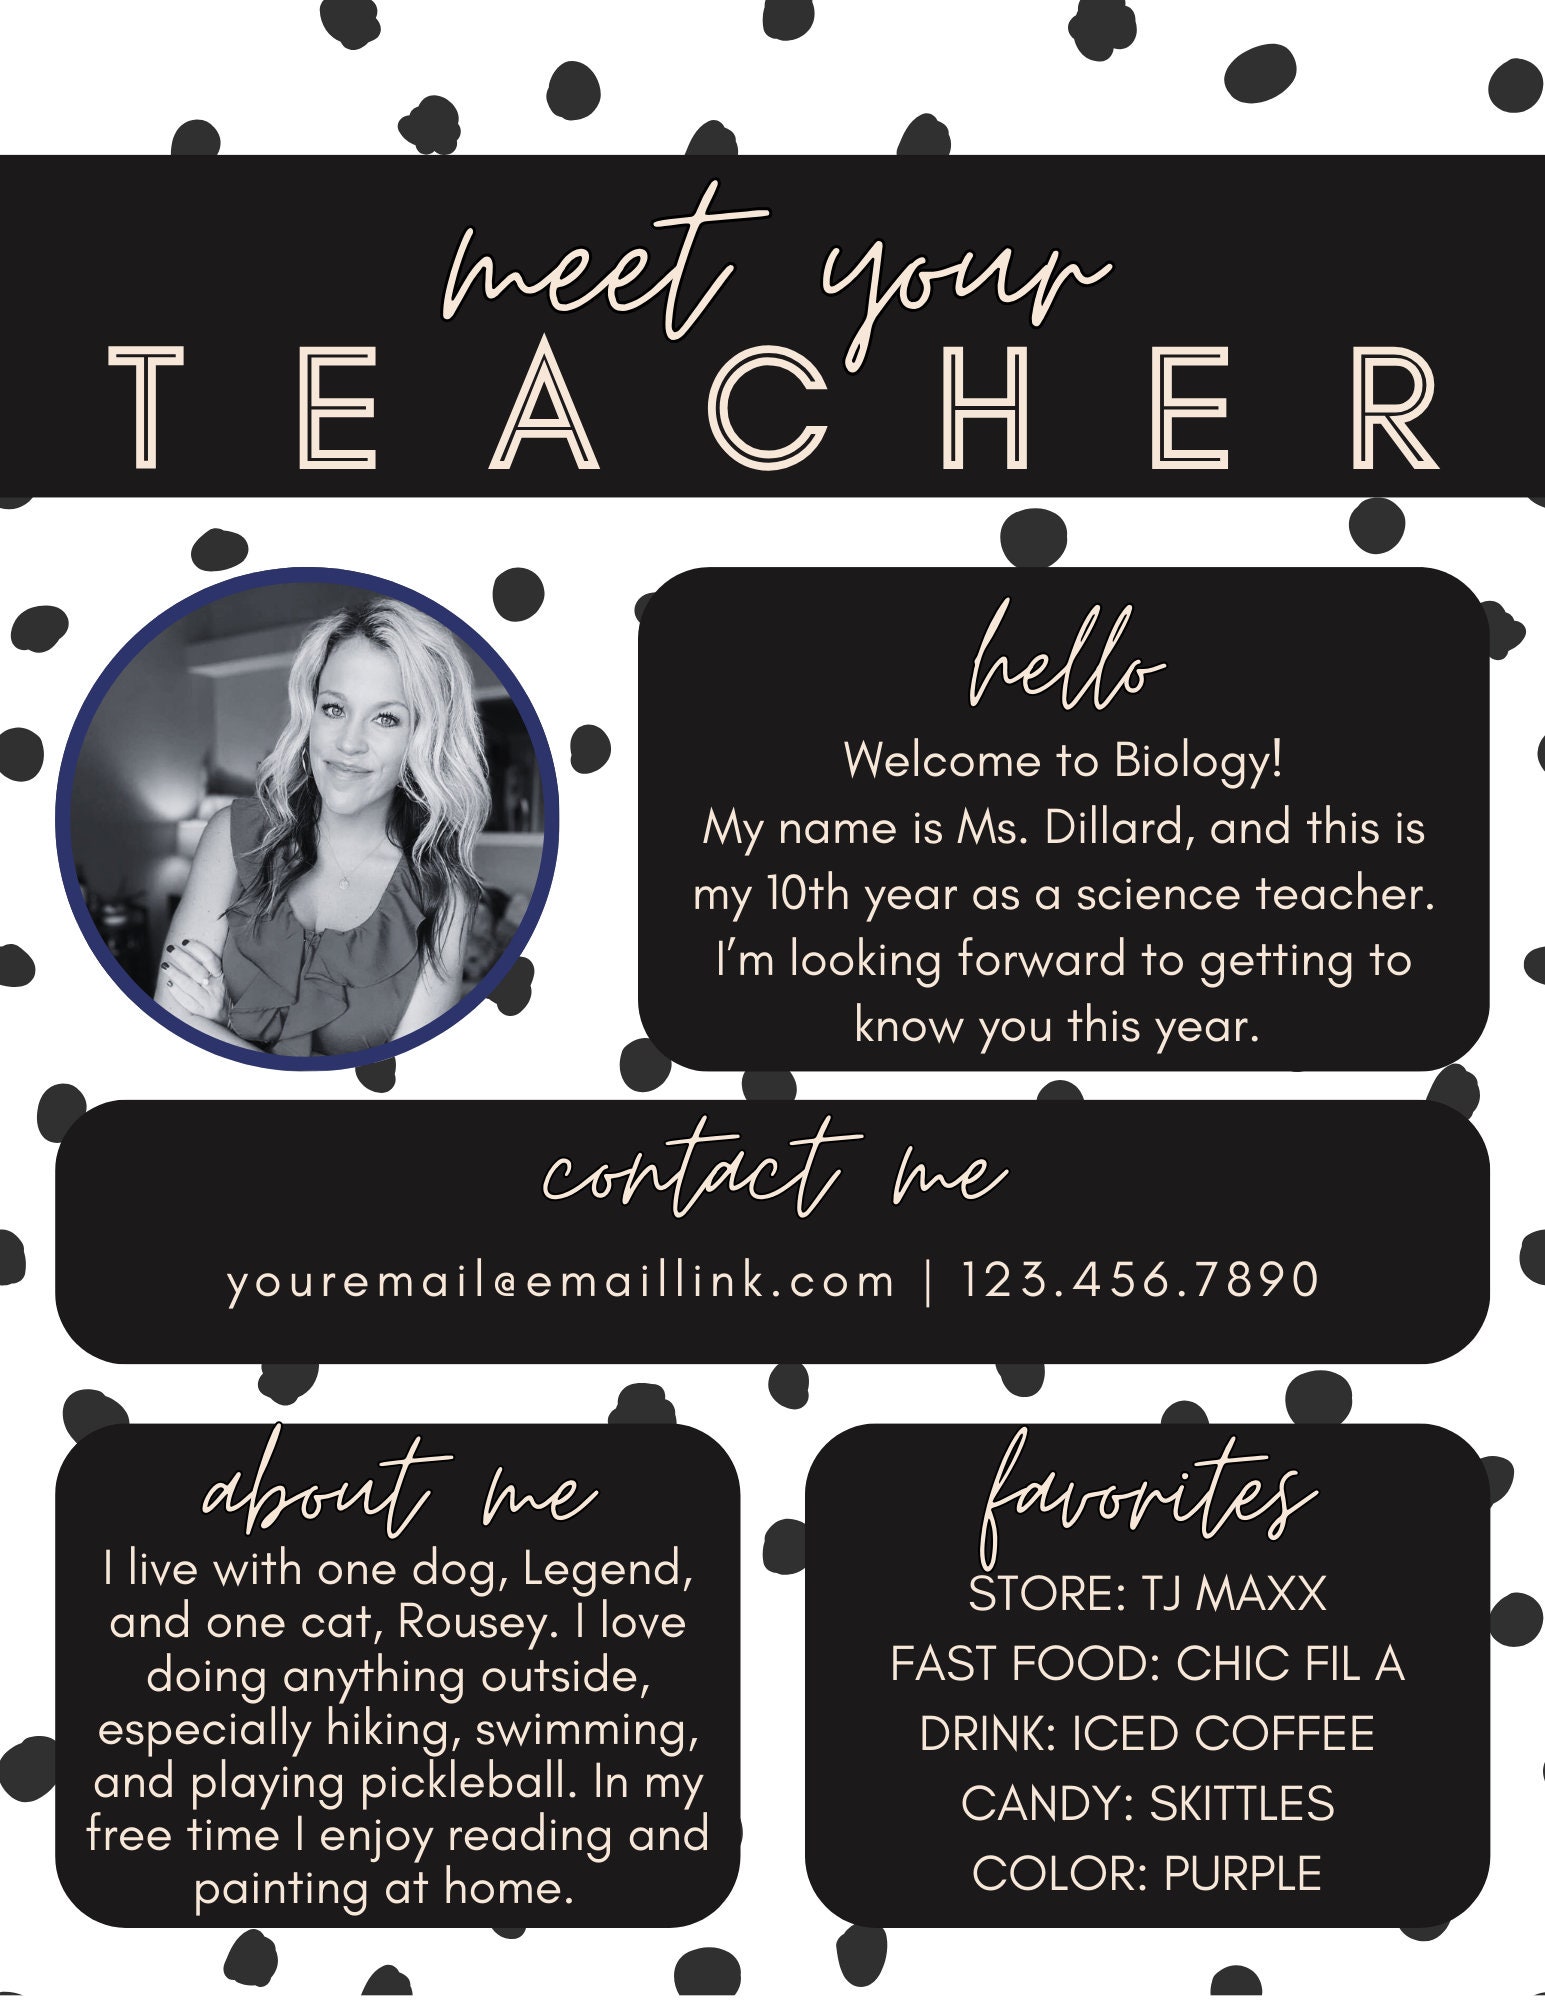 meet your
TEACHER
hello
Welcome to Biology!
My name is Ms. Dillard, and this is
my 10th year as a science teacher.
I'm looking forward to getting to
know you this year.
contact me
youremail@emaillink.com | 123.456.7890
about me
I live with one dog, Legend,
and one cat, Rousey. I love
doing anything outside,
especially hiking, swimming,
and playing pickleball. In my
free time I enjoy reading and
painting at home.
favorites
STORE: TJ MAXX
FAST FOOD: CHIC FIL A
DRINK: ICED COFFEE
CANDY: SKITTLES
COLOR: PURPLE